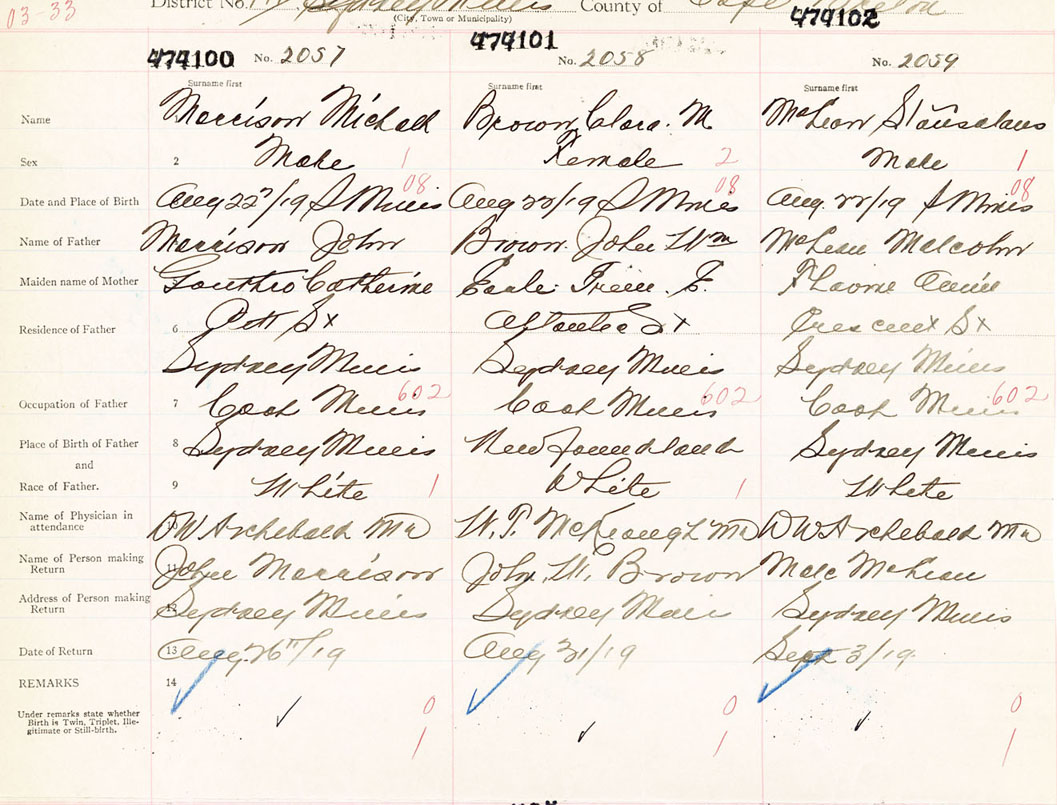 03-33
District No. Sydney Mines County of Cape Breton
(City, Town or Municipality)
474100 No. 2057 474101 No. 2058 474102 No. 2059
Surname first Surname first Surname first
Name Morrison Michael Brown, Clara. M. McLean Stanislaus
Sex 2 Male 1 Female 2 Male 1
08 08 08
Date and Place of Birth Aug 22/19 S Mines Aug 22/19 S Mines Aug. 22/19 S Mines
Name of Father Morrison John Brown. John Wm McLean Malcolm
Maiden name of Mother Gouthro Catherine F. Annie
Residence of Father 6 Pitt St Atlantic St Crescent St
Sydney Mines Sydney Mines Sydney Mines
602 602 602
Occupation of Father 7 Coal Miner Coal Miner Coal Miner
Place of Birth of Father 8 Sydney Mines Newfoundland Sydney Mines
and
Race of Father. 9 White 1 White 1 White
Name of Physician in
attendance 10 DW Archebald MD W. T. McKeough MD DW Archebald MD
Name of Person making
Return 11 John Morrison John. W. Brown Malc McLean
Address of Person making
Return 12 Sydney Mines Sydney Mines Sydney Mines
Date of Return 13 Aug. 26th/19 Aug 31/19 Sept 3/19.
REMARKS 14
Under remarks state whether
Birth is Twin, Triplet, Ille-
gitimate or Still-birth.
0 0 0
1 1 1